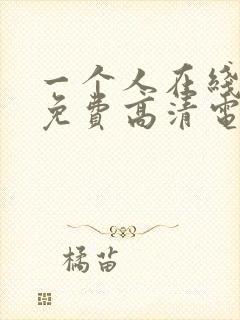 一个人在线
免费高清电
橘苗